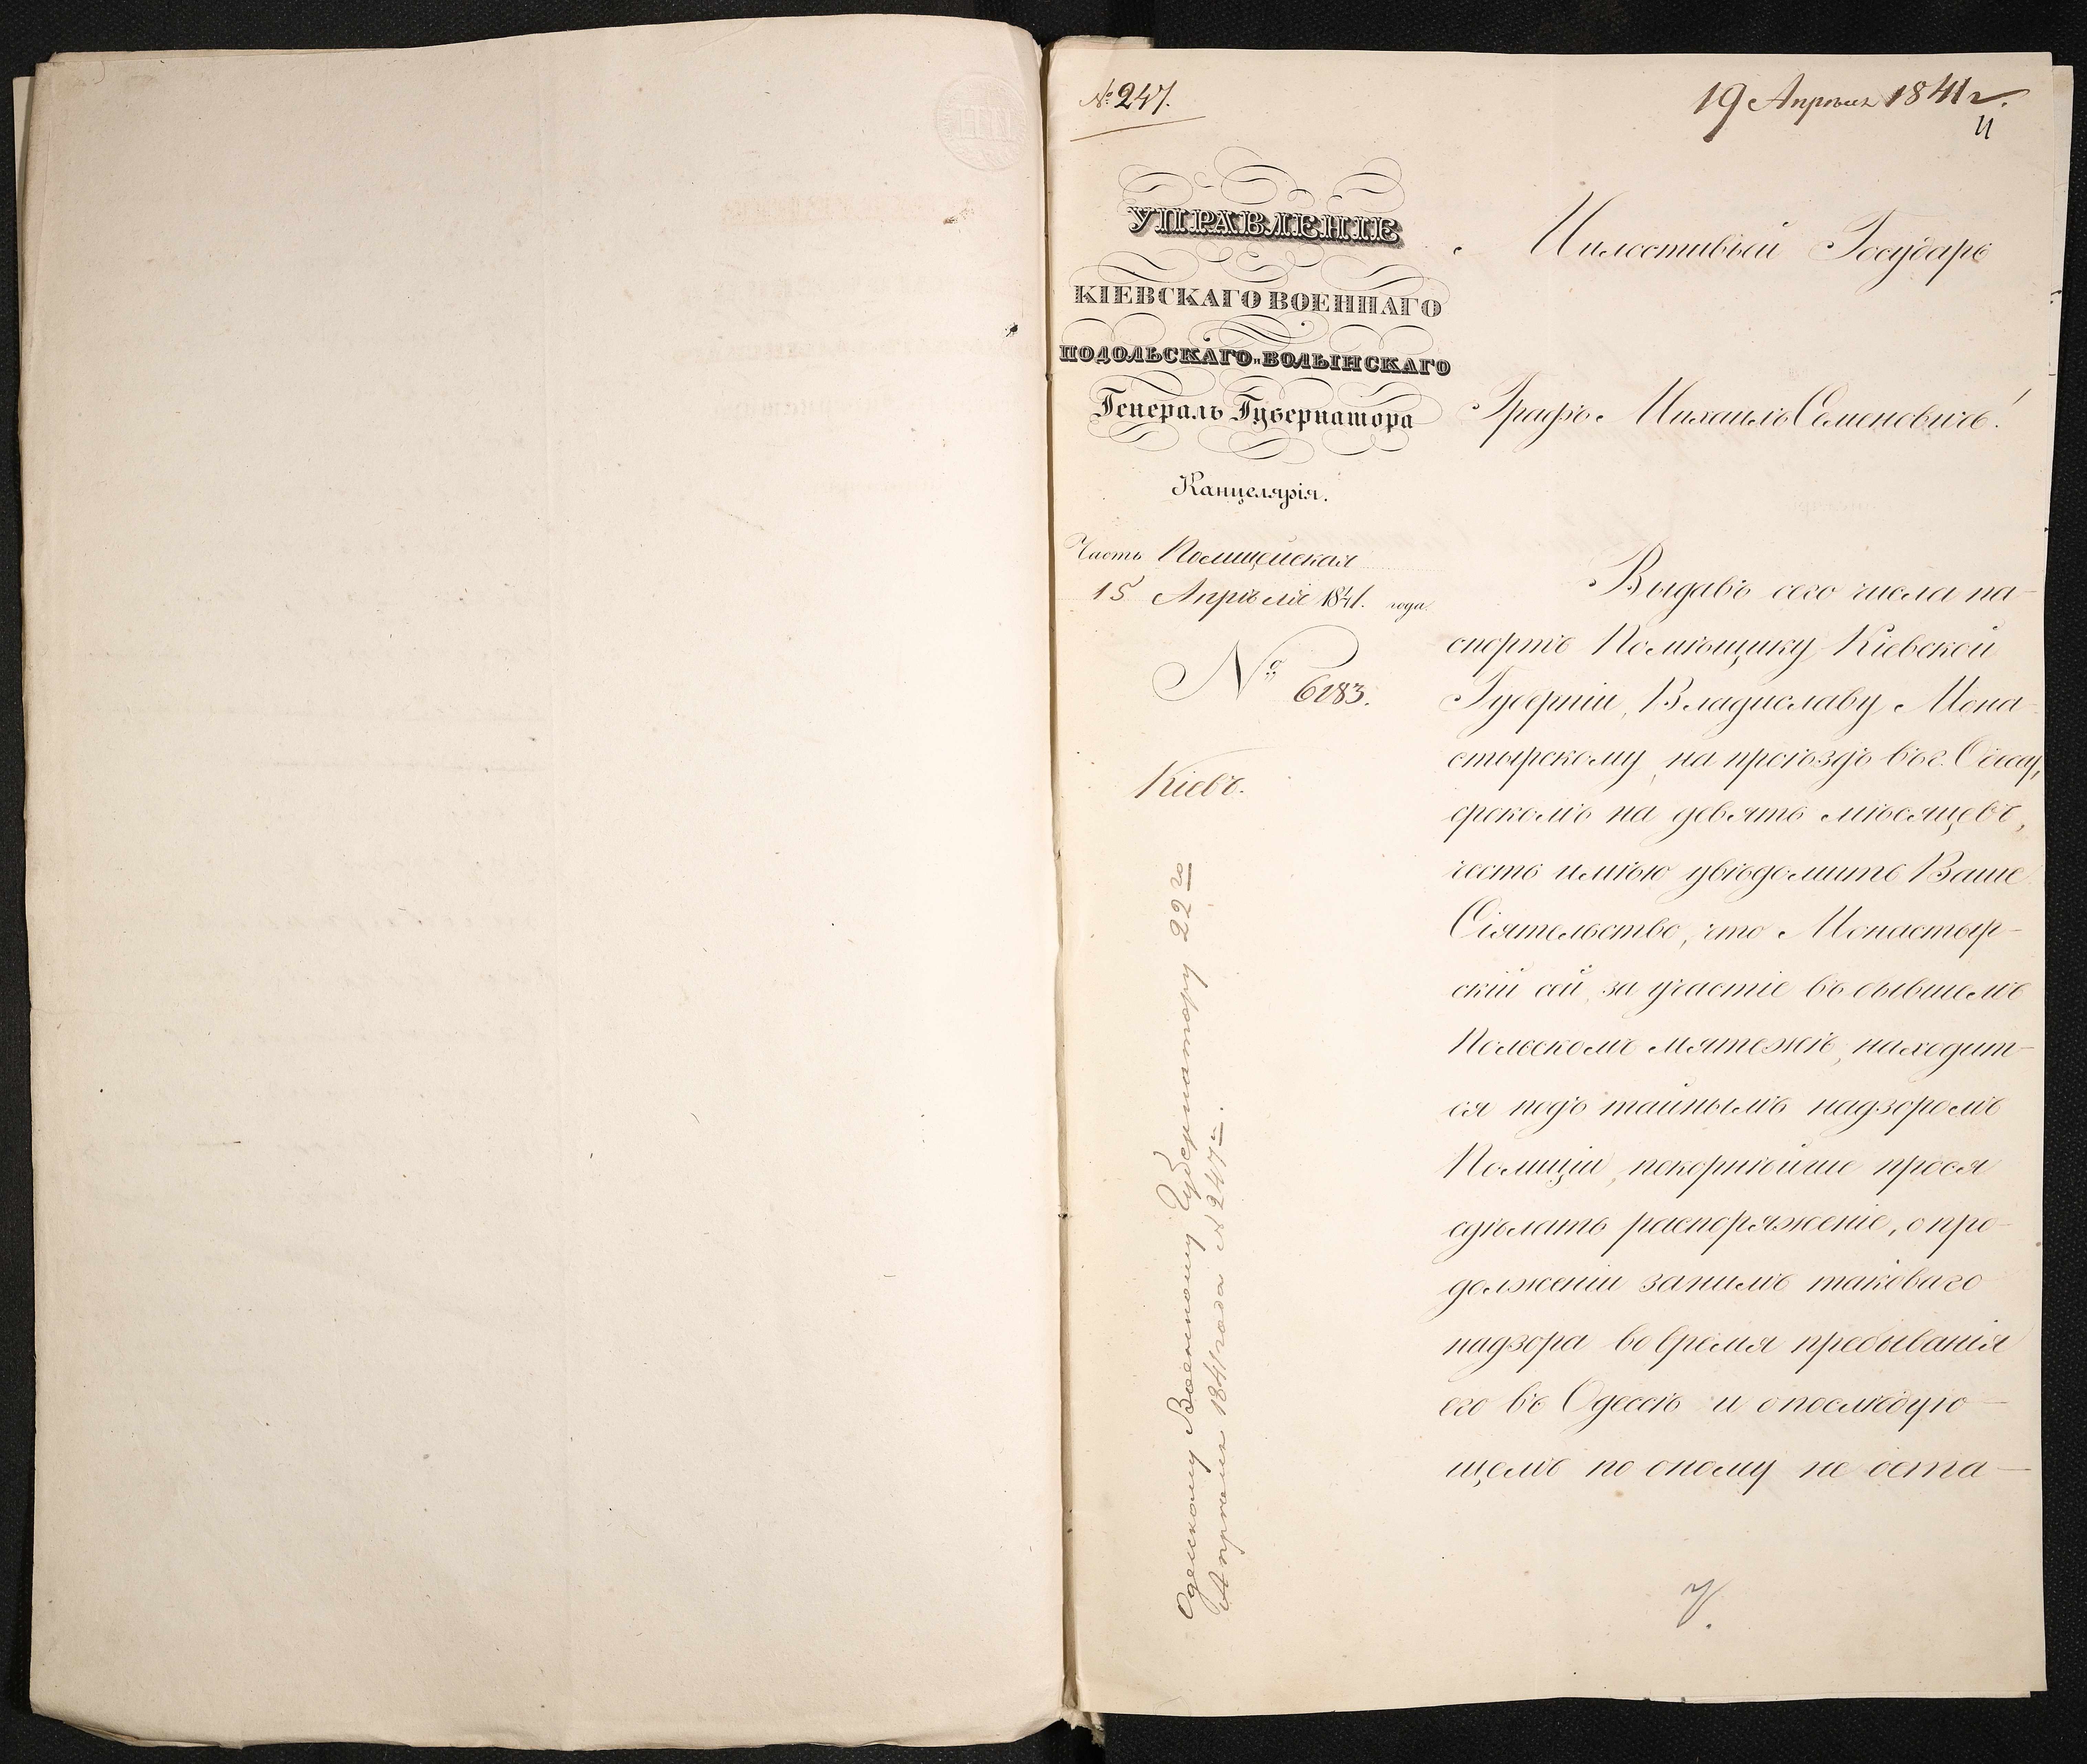 № 247.
19 Апрѣля 1841 г.
УПРАВЛЕНІЕ
КІЕВСКАГО ВОЕННАГО
ПОДОЛЬСКАГО И ВОЛЫНСКАГО
Генералъ Губернатора
Канцелярія.
Часть Полицейская
15 Апрѣля 1841. года.
№ 6283.
Кіевъ.
Милостивый Государь
Графъ Михаилъ Семеновичъ!
Выдавъ сего числа па-
спортъ Помѣщику Кіевской
Губерніи, Владиславу Мона-
стырскому, на проѣздъ въ г. Одессу,
срокомъ на девять мѣсяцевъ,
честь имѣю увѣдомить Ваше
Сіятельство, что Монастыр-
скій сей, за участіе въ бывшемъ
Польскомъ мятежѣ, находит-
ся подъ тайнымъ надзоромъ
Полиціи, покорнѣйше прося
сдѣлать распоряженіе, о про-
долженіи за нимъ таковаго
надзора во время пребыванія
его въ Одессѣ и о послѣдую-
щемъ по оному не оста-
Одесскому Военному Губернатору 22го
Апрѣля 1841 года № 247й.